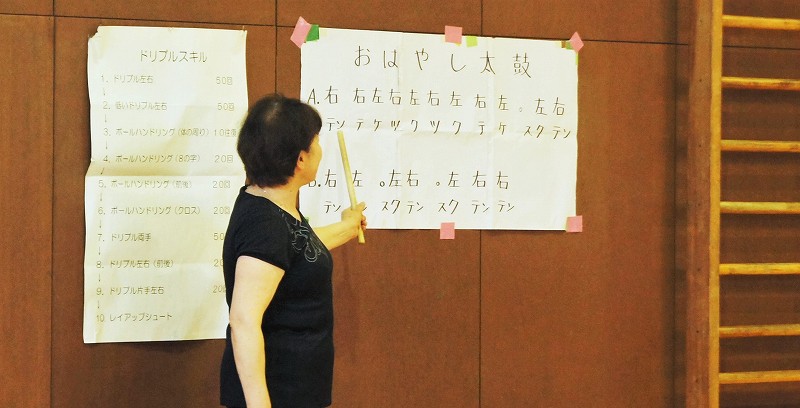 ドリブルスキル
1. ドリブル左右 50回
2. 低いドリブル左右 50回
3. ボールハンドリング(体の周り) 10往復
4. ボールハンドリング(8の字) 20回
5. ボールハンドリング(前後) 20回
6. ボールハンドリング(クロス) 20
7. ドリブル両手 50
8. ドリブル左右(前後) 2
9. ドリブル片手左右 20
10. レイアップシュート
おはやし太鼓
A. 右 右左右左右左 右左。左右
テン テケツクツク テケ スクテン
右左 。左右 。左右右
テン スクテン スクテンテン